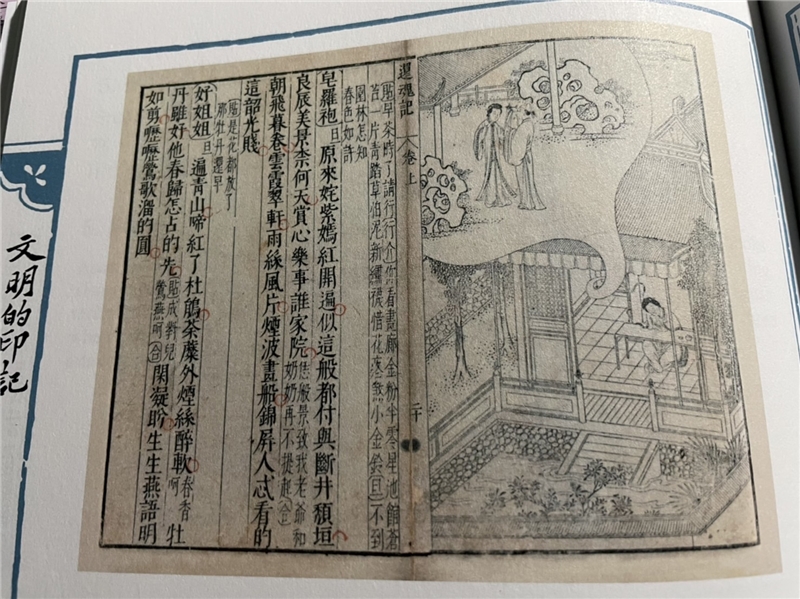 還魂記
卷上
二十
貼早茶時了請行行介你看畫廊金粉半零星池館蒼
苔一片青踏草怕泥新繡襪惜花疼煞小金鈴旦不到
園林怎知
春色如許
皂羅袍旦原來姹紫嫣紅開遍似這般都付與斷井頹垣
良辰美景柰何天賞心樂事誰家院恁般景致我老爺和奶奶再不提起合
朝飛暮卷雲霞翠軒雨絲風片煙波畫船錦屏人忒看的
這韶光賤
貼是花都放了
那牡丹還早
好姐姐旦遍青山啼紅了杜鵑荼蘼外煙絲醉軟春香呵牡
丹雖好他春歸怎占的先貼成對兒鶯燕呵合閑凝眄生生燕語明
如剪嚦嚦鶯歌溜的圓
文明的印記